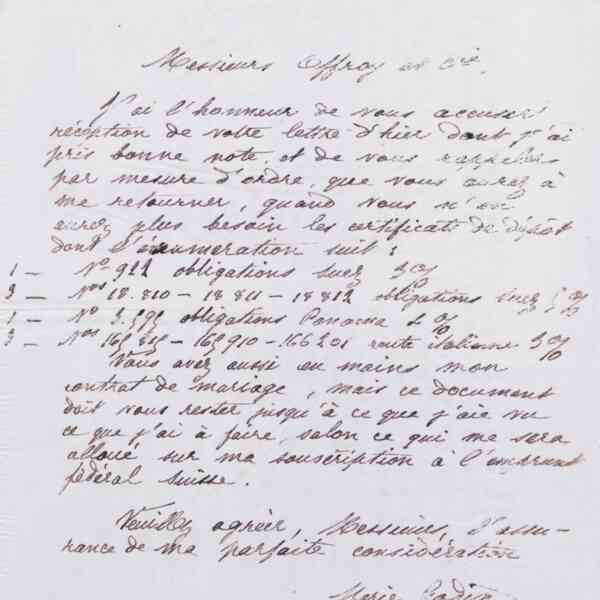 Messieurs Offroy et Cie,
J'ai l'honneur de vous accuser
réception de votre lettre d'hier dont j'ai
pris bonne note, et de vous rappeler
par mesure d'ordre, que vous aurez à
me retourner, quand vous n'en
aurez plus besoin les certificats de dépôt
dont l'énumération suit :
1 — No 922 obligations Suez 3 %
3 — Nos 18.810 — 18.811 — 18.812 obligations Suez 5 %
1 — No 3.595 obligations Panama %
3 — Nos — 165.910 — 166.201 italienne 3 %
Vous avez aussi en mains mon
contrat de mariage, mais ce document
doit vous rester jusqu'à ce que j'aie vu
ce que j'ai à faire, selon ce qui me sera
alloué sur ma souscription à l'emprunt
fédéral suisse.
Veuillez agréer, Messieurs, l'assu-
rance de ma parfaite considération
Marie